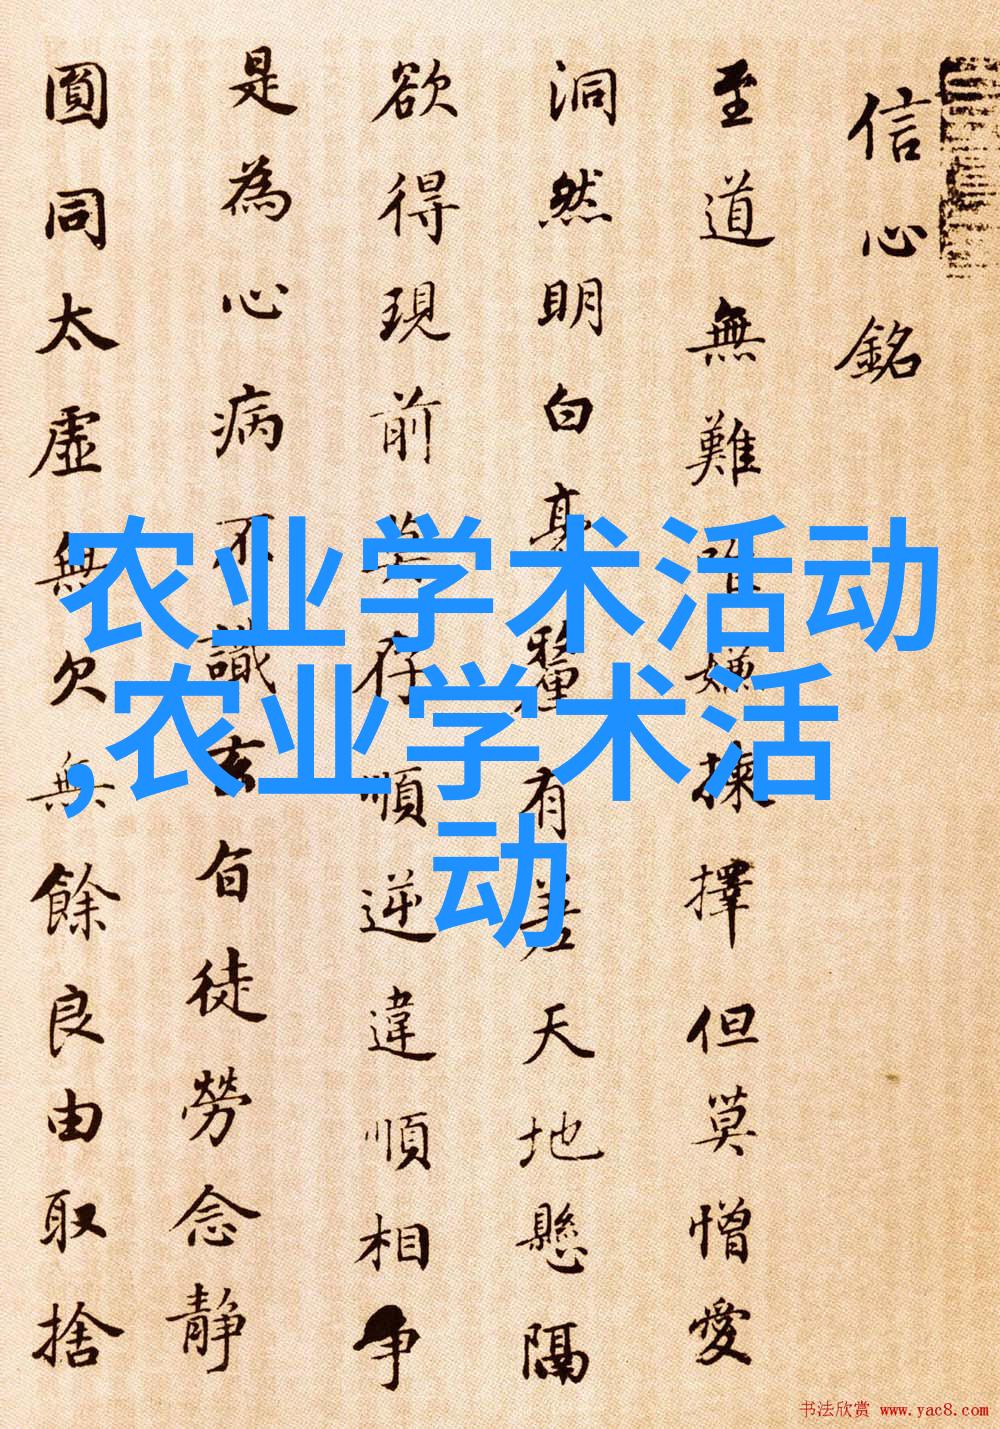 信心銘
至道無難唯嫌揀擇但莫憎愛
洞然明白毫釐有差天地懸隔
欲得現前莫存順逆違順相争
是為心病不識玄旨徒勞念静
圓同太虛無欠無餘良由取捨
农业学术活动
,农业学术活
动
书法欣赏 www.yac8.com